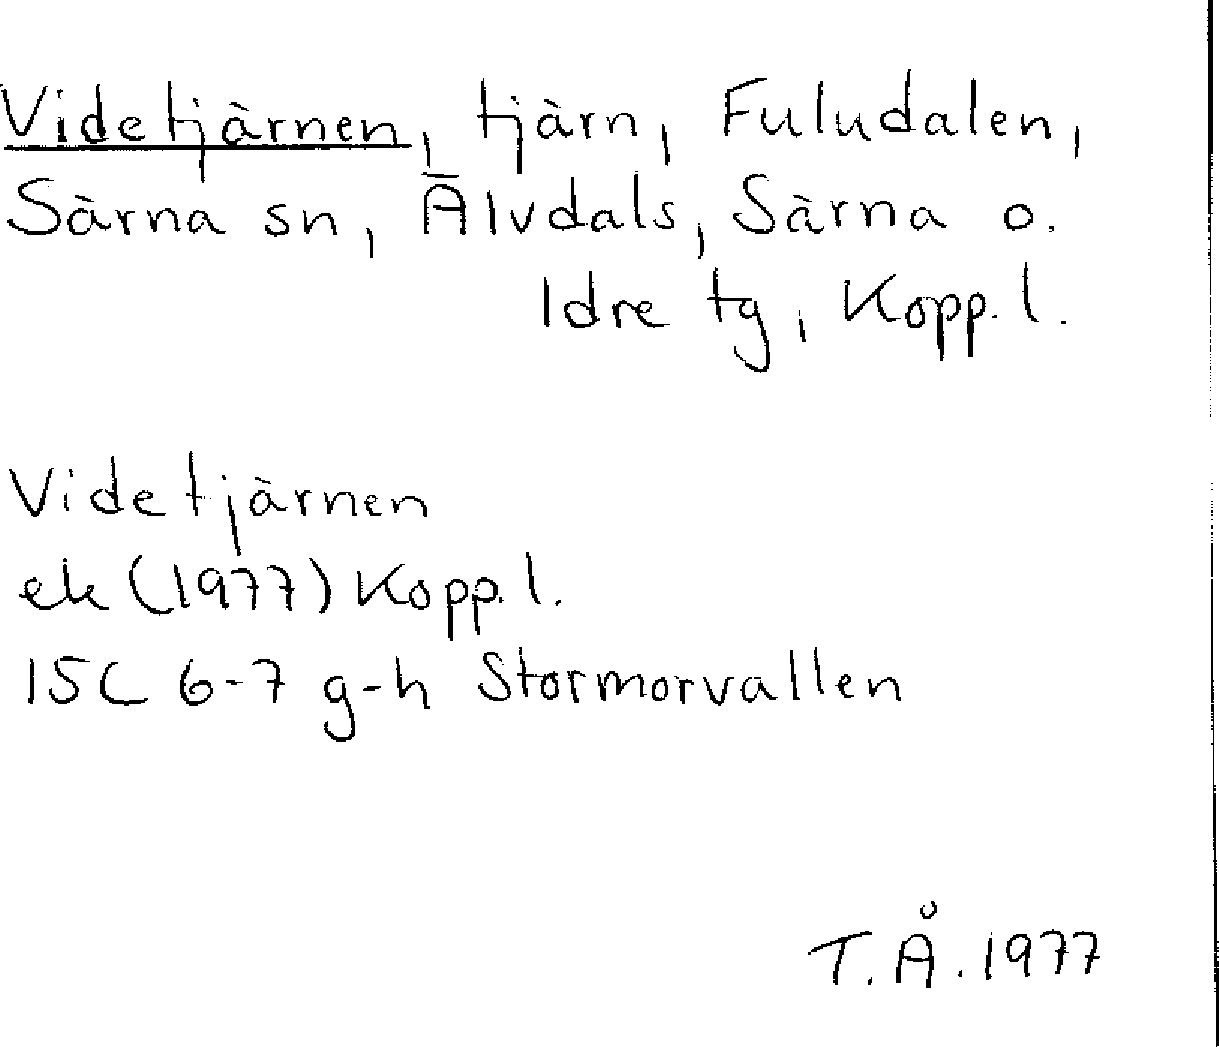 Videtjärnen, tjärn, Fuludalen,
Särna sn, Älvdals, Särna o.
Idre tg, Kopp. l.
Videtjärnen
ek (1977) Kopp. l.
15C 6-7 g-h Stormorvallen
T.Å. 1977